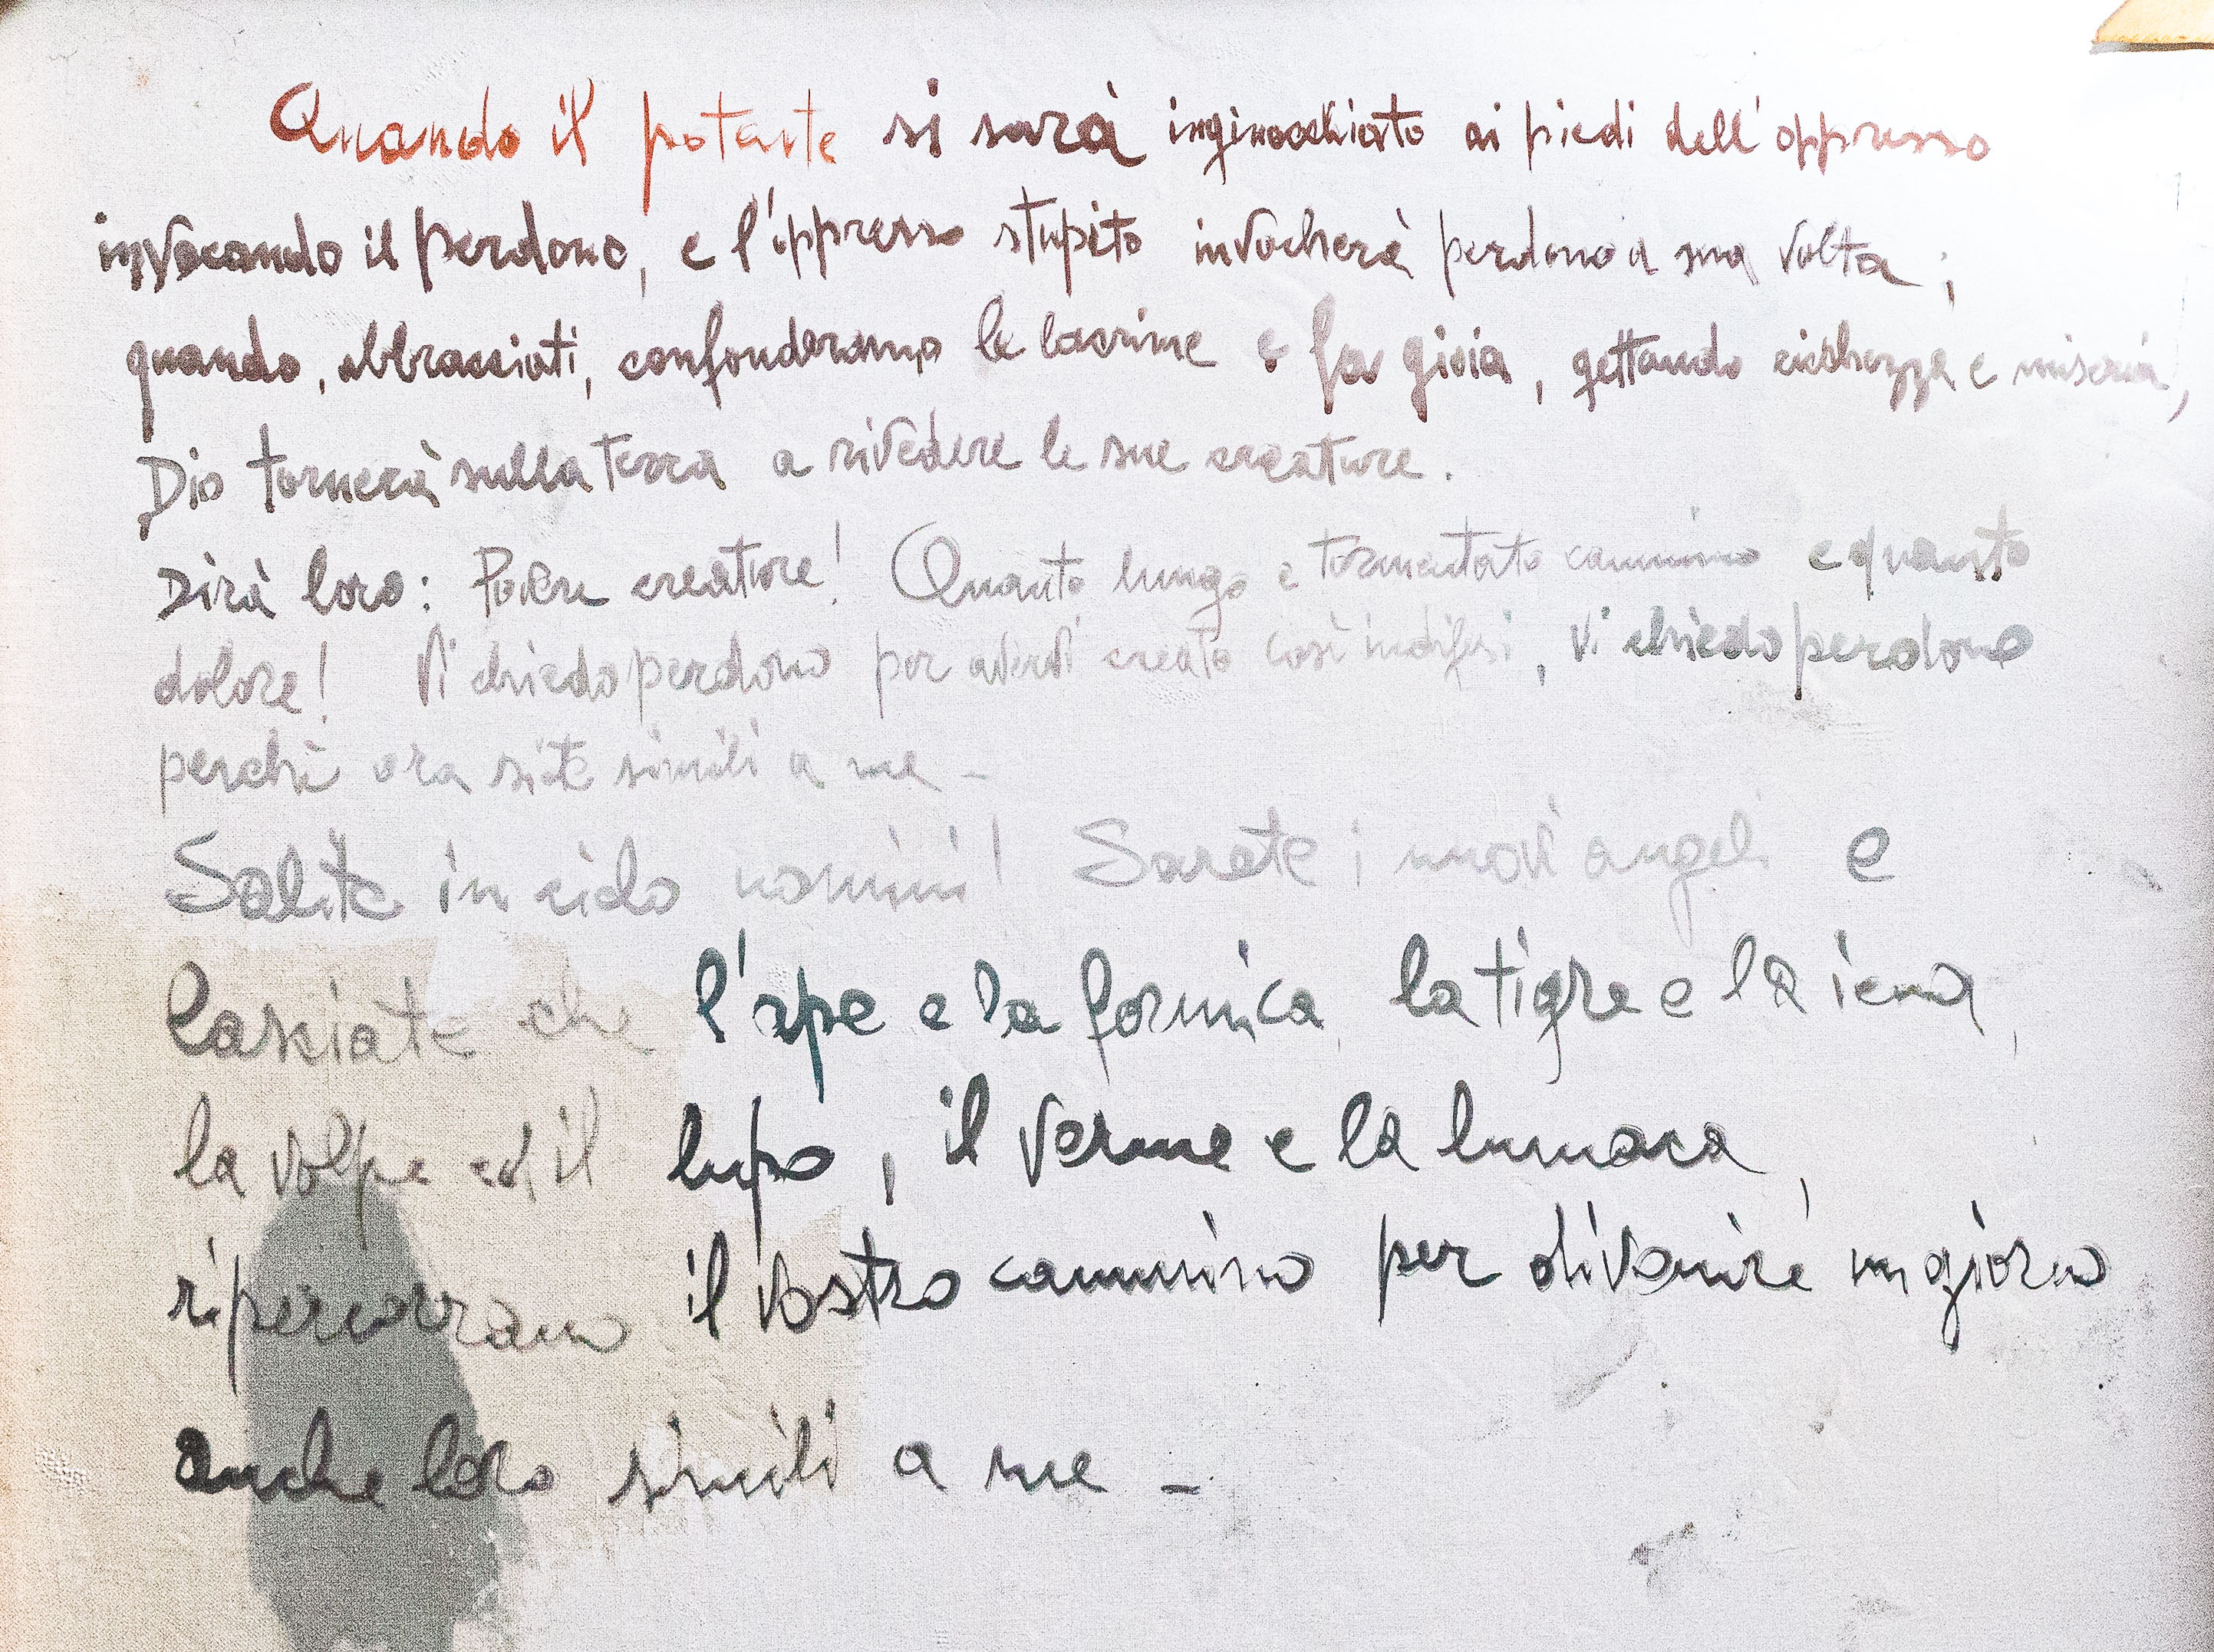 Quando il potente si sarà inginocchiato ai piedi dell'oppresso
invocando il perdono, e l'oppresso stupito invocherà perdono a sua volta;
quando, abbracciati, confonderanno le lacrime e la gioia, gettando ricchezza e miseria,
Dio tornerà sulla terra a rivedere le sue creature.
Dirà loro: Povere creature! Quanto lungo e tormentato cammino e quanto
dolore! Vi chiedo perdono per avervi creato così indifesi, vi chiedo perdono
perchè ora siete simili a me -
Salite in cielo uomini! Sarete i nuovi angeli e
lasciate che l'ape e la formica, la tigre e la iena,
la volpe ed il lupo, il verme e la lumaca,
ripercorrano il vostro cammino per divenire un giorno
anche loro simili a me -